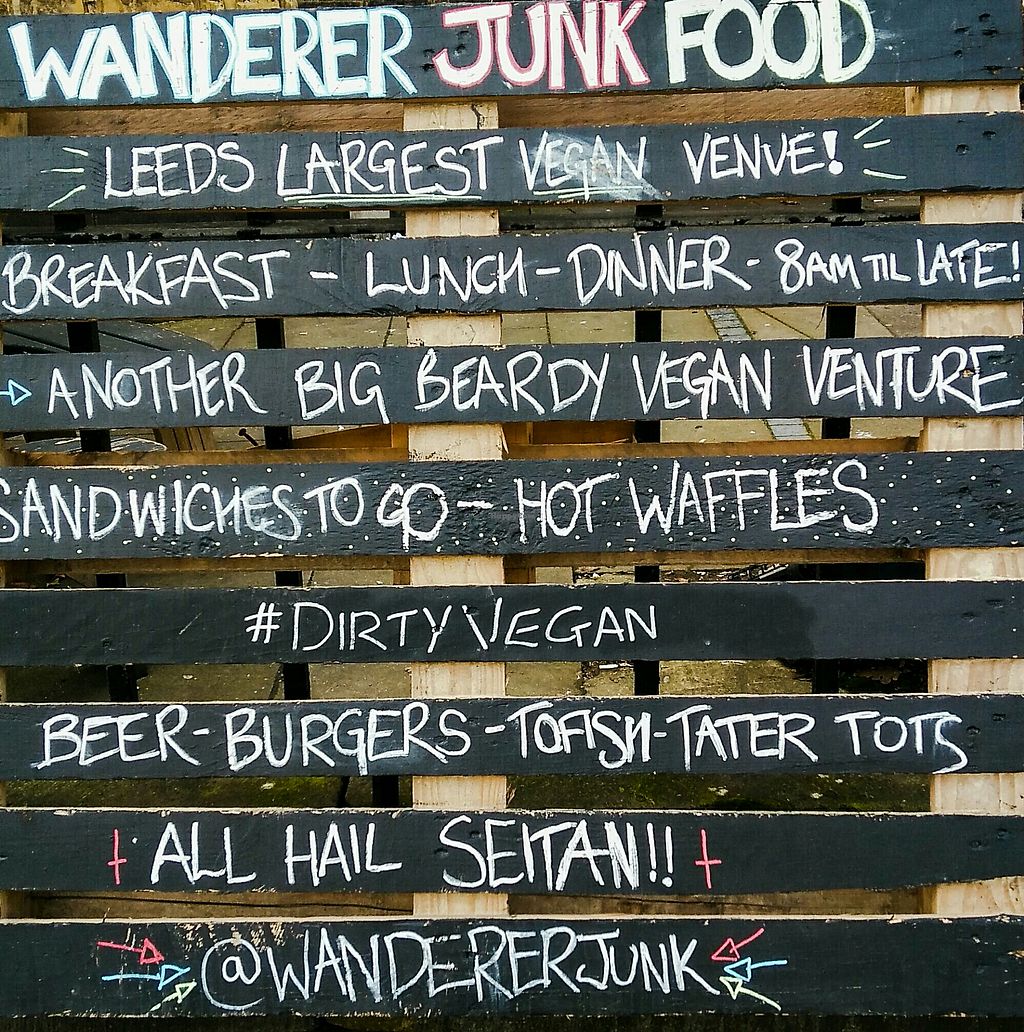 WANDERER JUNK FOOD
LEEDS LARGEST VEGAN VENUE!
BREAKFAST - LUNCH - DINNER - 8AM TIL LATE!
ANOTHER BIG BEARDY VEGAN VENTURE
SANDWICHES TO GO - HOT WAFFLES
#DIRTYVEGAN
BEER - BURGERS - TOFISH - TATER TOTS
ALL HAIL SEITAN!!
@WANDERERJUNK